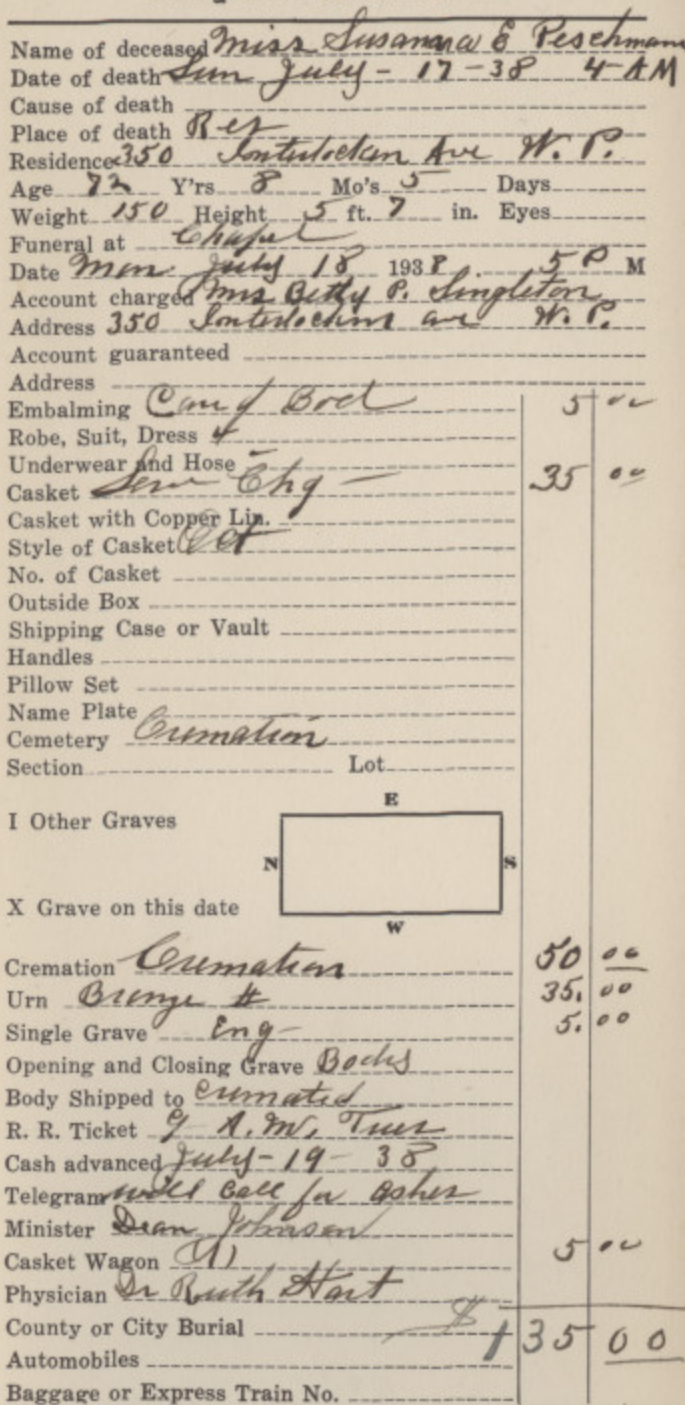 Name of deceased Miss Susanna E Peschmann
Date of death Sun July - 17 - 38 4 AM
Cause of death
Place of death Res
Residence 350 Interlocken Ave W. P.
Age 72 Y'rs 8 Mo's 5 Days
Weight 150 Height 5 ft. 7 in. Eyes
Funeral at Chapel
Date Mon July 18 1938. 5 P M
Account charged Mrs Betty P. Singleton
Address 350 Interlocken ave W. P.
Account guaranteed
Address
Embalming Care of Bod 5 00
Robe, Suit, Dress
Underwear and Hose -
Casket Serv Chg - 35 00
Casket with Copper Lin.
Style of Casket Oct
No. of Casket
Outside Box
Shipping Case or Vault
Handles
Pillow Set
Name Plate
Cemetery Cremation
Section Lot
E
I Other Graves
N S
X Grave on this date
W
Cremation Cremation 50 00
Urn Bronze # 35. 00
Single Grave Eng - 5. 00
Opening and Closing Grave Body
Body Shipped to Cremated
R. R. Ticket 9 A. M. Tues
Cash advanced July - 19 - 38
Telegram will call for ashes
Minister Dean Johnson
Casket Wagon (1) 5 00
Physician Dr Ruth Hart
County or City Burial $ 135 00
Automobiles
Baggage or Express Train No.